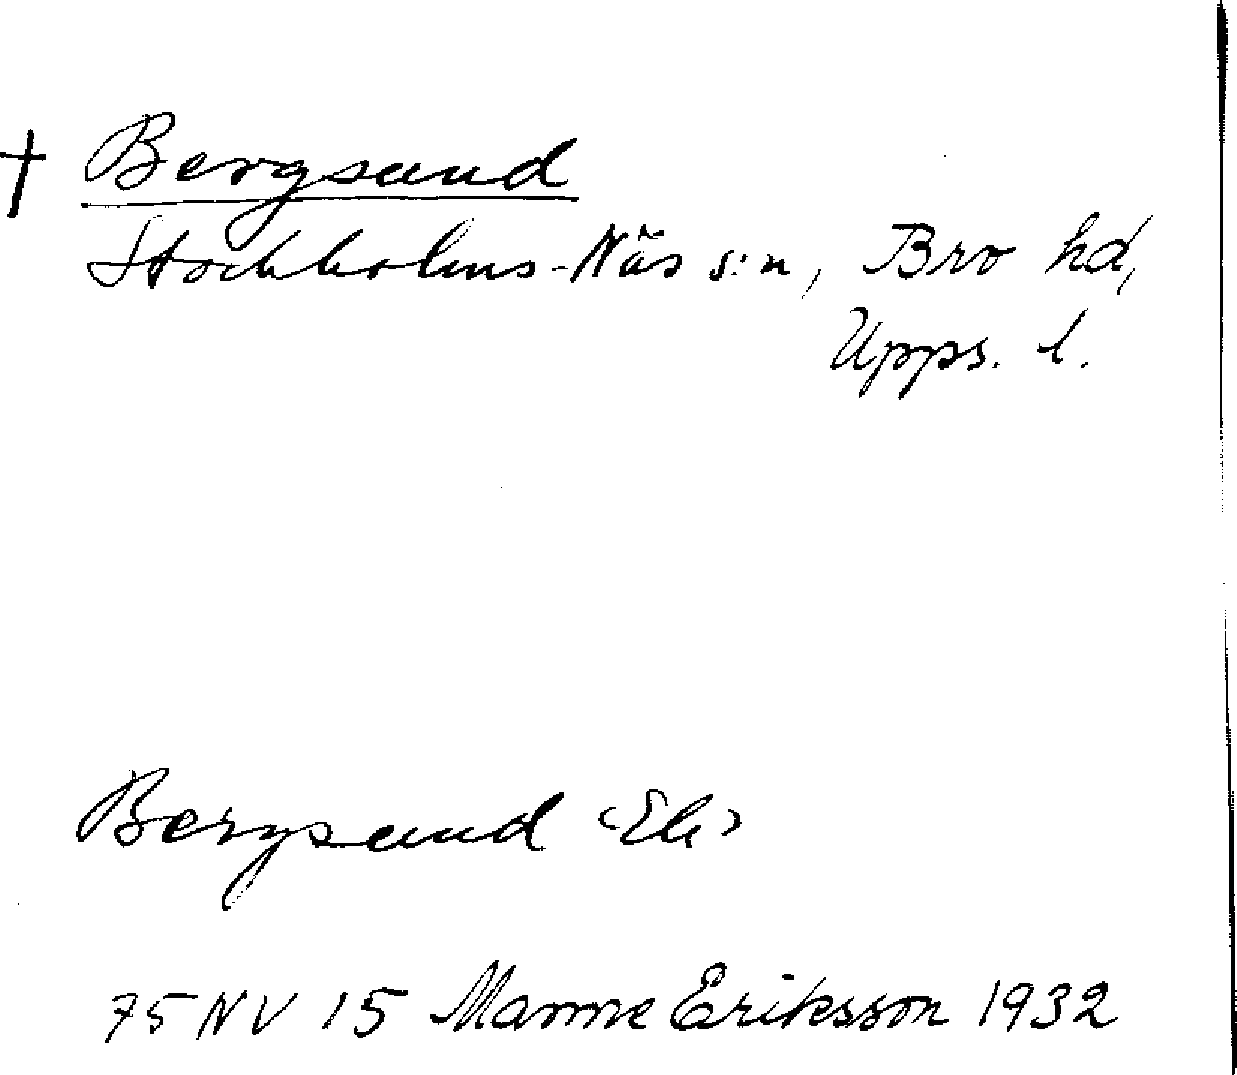 † Bergsand
Stockholms-Näs s:n, Bro hd,
Upps. l.
Bergsand <Ek>
75 NV 15 Manne Eriksson 1932